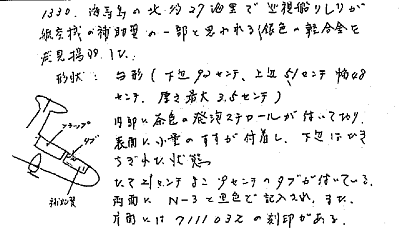 1330. 海青島の北 約27浬里で巡視船りしりが
航空機の補助翼の一部と思われる銀色の軽合金を
発見揚収した。
形状： 台形（下辺92センチ、上辺51センチ 幅48
センチ、厚さ最大3.5センチ）
内部に茶色の発泡スチロールが付いており、
表面に少量のすすが付着し、下辺はひき
ちぎれた状態
たて21センチ よこ9センチのタブが付いている。
両面に N-3と黒色で記入され、また、
片面には7111032の刻印がある。
フラップ
タブ
補助翼